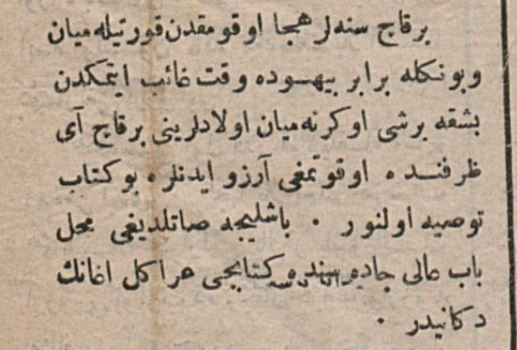 برقاچ سنه‌لر هجا اوقومقدن قورتیله‌میان
و بونكله برابر بیهوده وقت غائب ایتمكدن
بشقه برشی اوكرنه‌میان اولادلرینی برقاچ آی
ظرفنده اوقوتمغی آرزو ایدنلره بو كتاب
توصیه اولنور . باشلیجه صاتلدیغی محل
باب عالی جاده‌سنده كتابجی هراكل اغانك
دكانیدر .